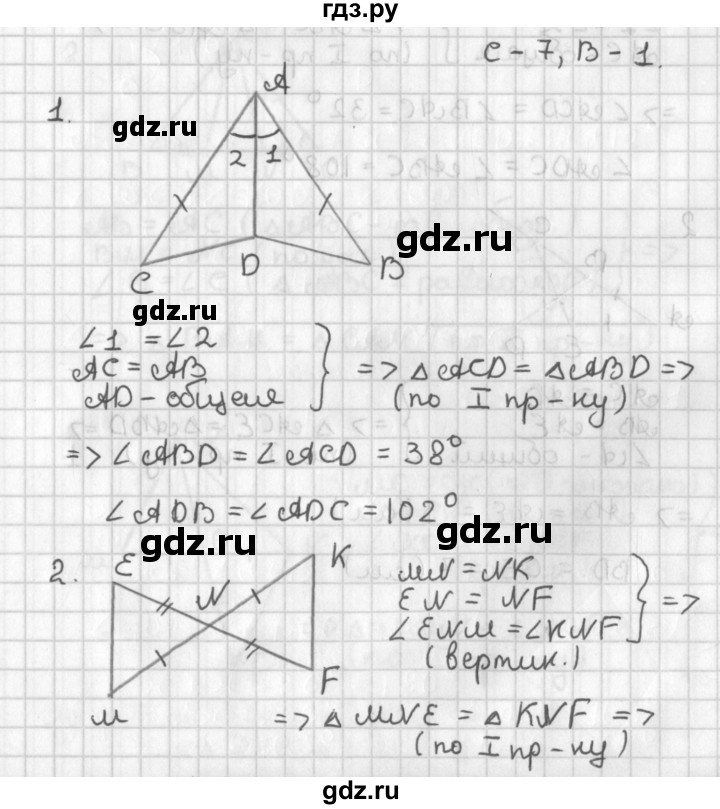 гдз.ру
С-7, В-1.
1.
A
gdz.ru
2 1
gdz.ru
C D B
gdz.ru
∠1 = ∠2
AC = AB
AD - общая
=> △ACD = △ABD =>
(по I пр-ку)
=> ∠ABD = ∠ACD = 38°
∠ADB = ∠ADC = 102°
gdz.ru
gdz.ru
2.
E K
N
M F
MN = NK
EN = NF
∠ENM = ∠KNF
(вертик.)
=>
=> △MNE = △KNF =>
(по I пр-ку)
gdz.ru
gdz.ru